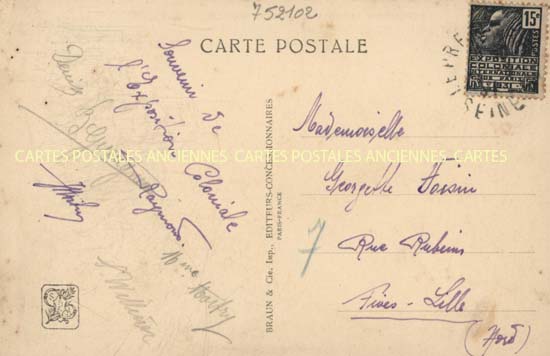 752102
CARTE POSTALE
15c
POSTES
EXPOSITION
COLONIALE
INTERNATIONALE
PARIS 1931
SEINE
Souvenir de
l'Exposition Coloniale
Raymond
Denise
Mme
BRAUN & Cie, Imp., EDITEURS-CONCESSIONNAIRES
PARIS-FRANCE
Mademoiselle
Georgette Voisin
7
Rue Rubens
Fives-Lille
(Nord)
CARTES POSTALES ANCIENNES CARTES POSTALES ANCIENNES CARTES